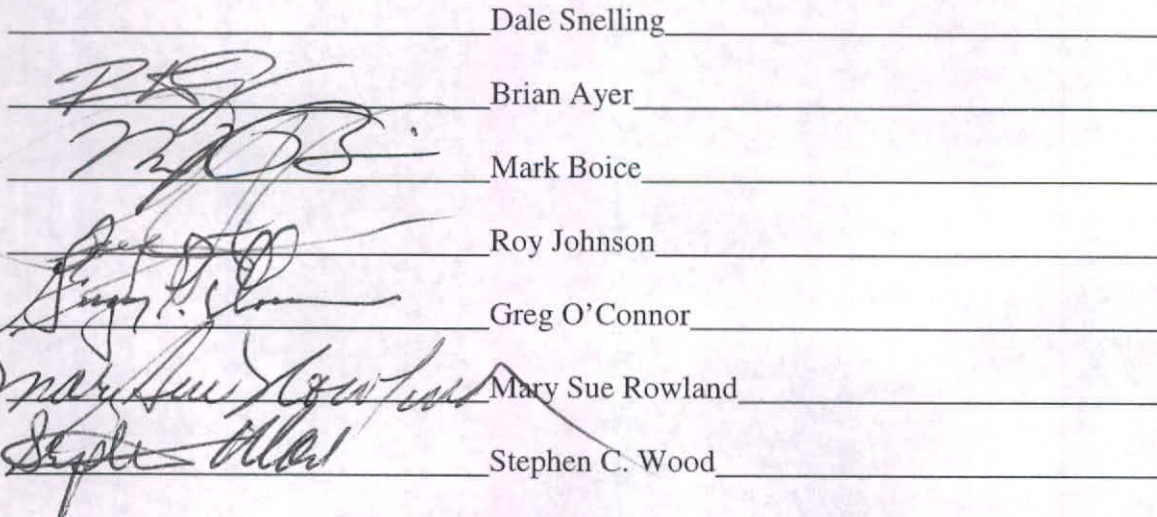 Dale Snelling
Brian Ayer
Mark Boice
Roy Johnson
Greg O'Connor
Mary Sue Rowland Mary Sue Rowland
Stephen Wood Stephen C. Wood